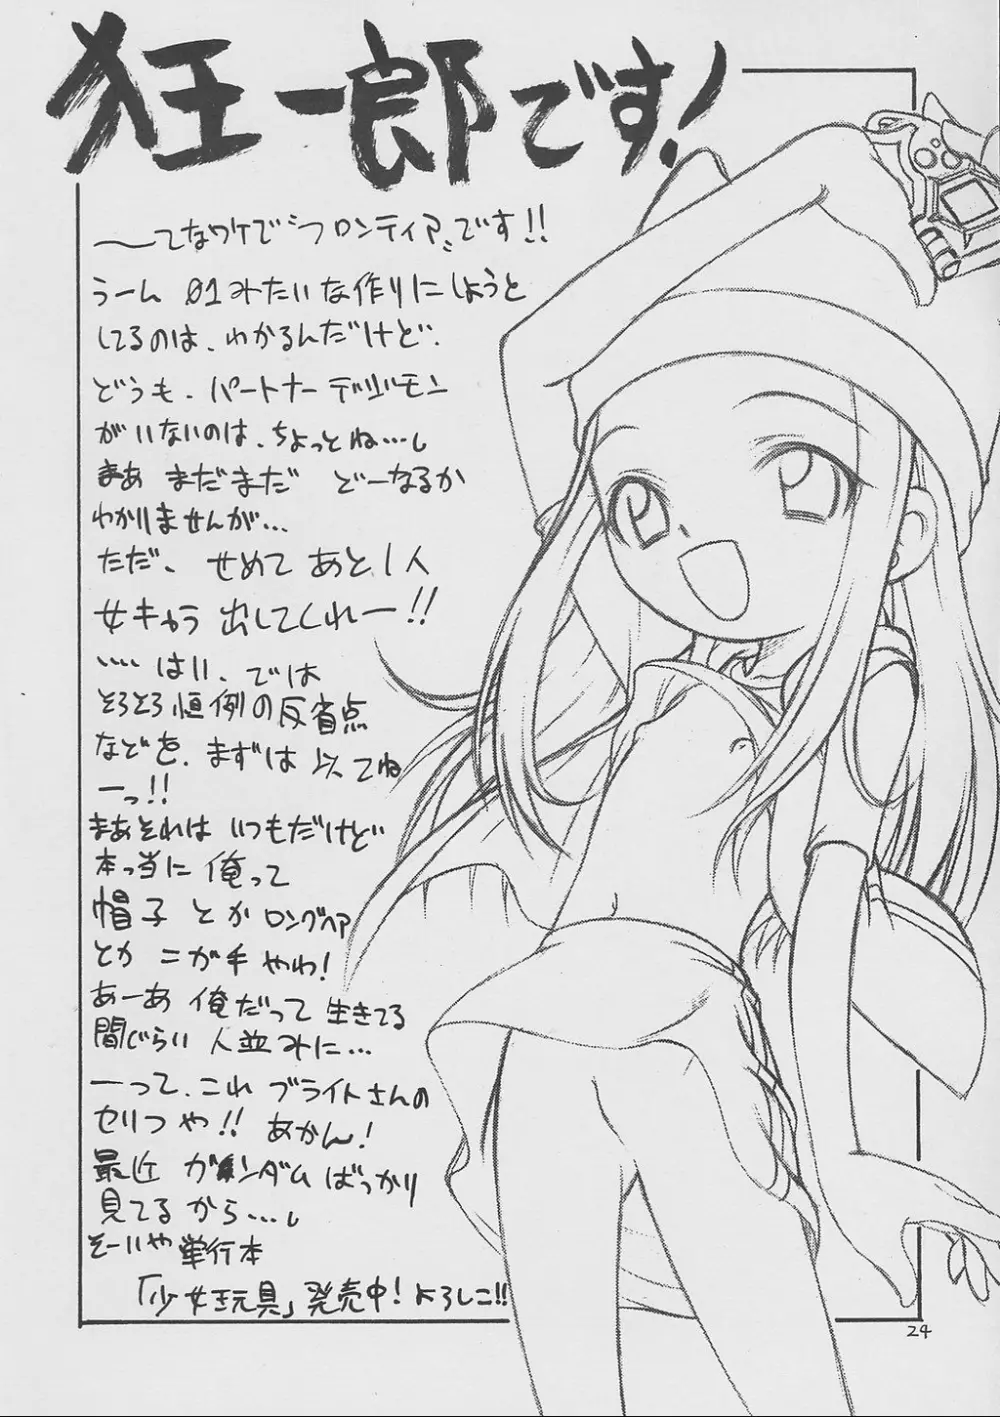 狂一郎です!
〜てなワケで"フロンティア"です!!
うーん 01みたいな作りにしようと
してるのは、わかるんだけど、
どうも、パートナーデジモン
がいないのは、ちょっとね…。
まあ まだまだ どーなるか
わかりませんが…
ただ、せめて あと1人
女キャラ 出してくれー!!
…… はい、では
そろそろ恒例の反省点
などを、まずは 以てね
ーっ!!
まあそれは いつもだけど
本っ当に 俺って
帽子 とか ロングヘア
とか ニガ手 やわ!
あーあ 俺だって 生きてる
間じらい 人並みに…
ーって、これ ブライトさんの
セリフや!! あかん!
最近 ガンダム ばっかり
見てるから…。
そーいや 単行本
「少女玩具」発売中! よろしこ!!
24